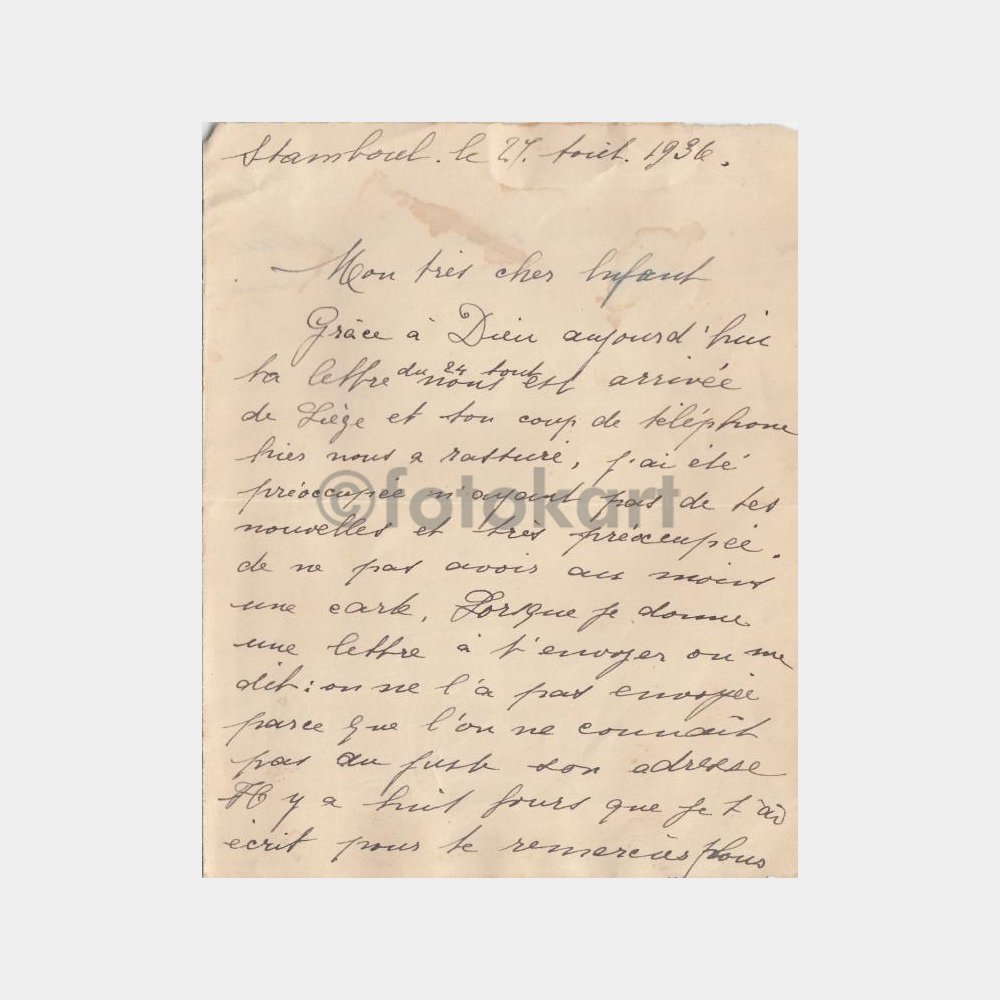 Stamboul. le 27. Aout. 1936.
Mon très cher Enfant
Grâce à Dieu aujourd'hui
ta lettre du 24 Aout nous est arrivée
de Liège et ton coup de téléphone
hier nous a rassuré, j'ai été
préoccupée n'ayant pas de tes
nouvelles et très préoccupée.
de ne pas avoir au moins
une carte. Lorsque je donne
une lettre à t'envoyer on me
dit: on ne l'a pas envoyée
parce que l'on ne connaît
pas au juste son adresse
Il y a huit jours que je t'ai
écrit pour te remercier
©fotokart